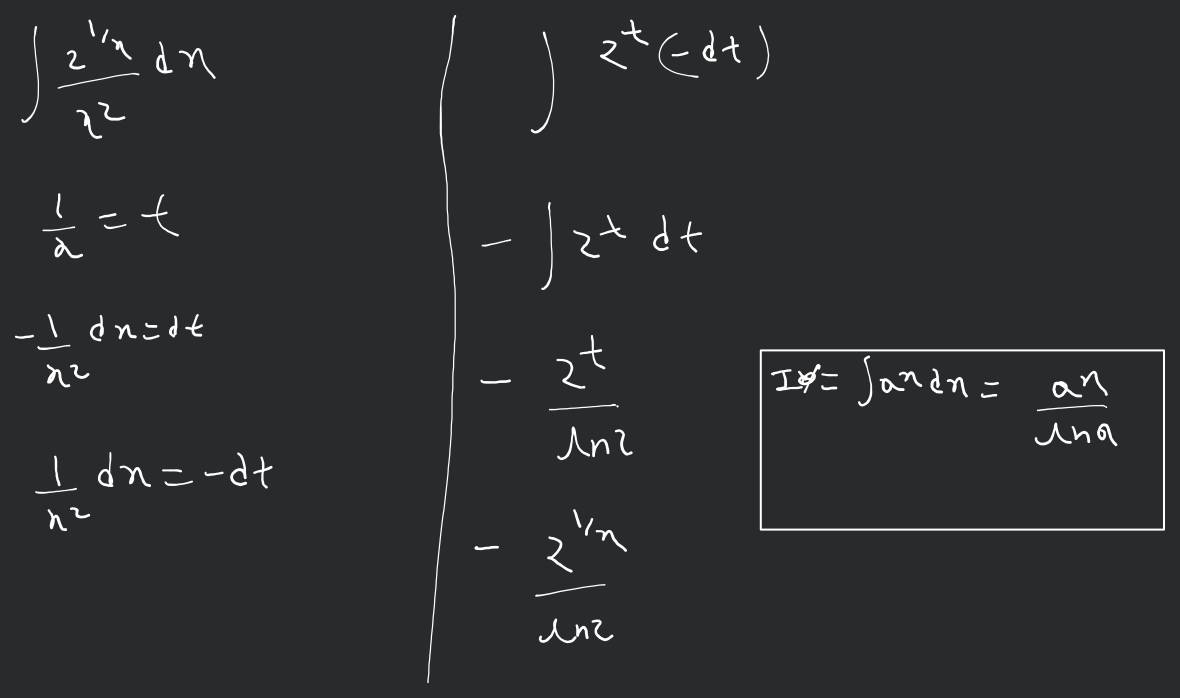 ∫ 2^(1/x)/x² dx
1/x = t
-1/x² dx = dt
1/x² dx = -dt
∫ 2^t (-dt)
- ∫ 2^t dt
- 2^t/ln2
- 2^(1/x)/ln2
∫a^x dx = a^x/lna